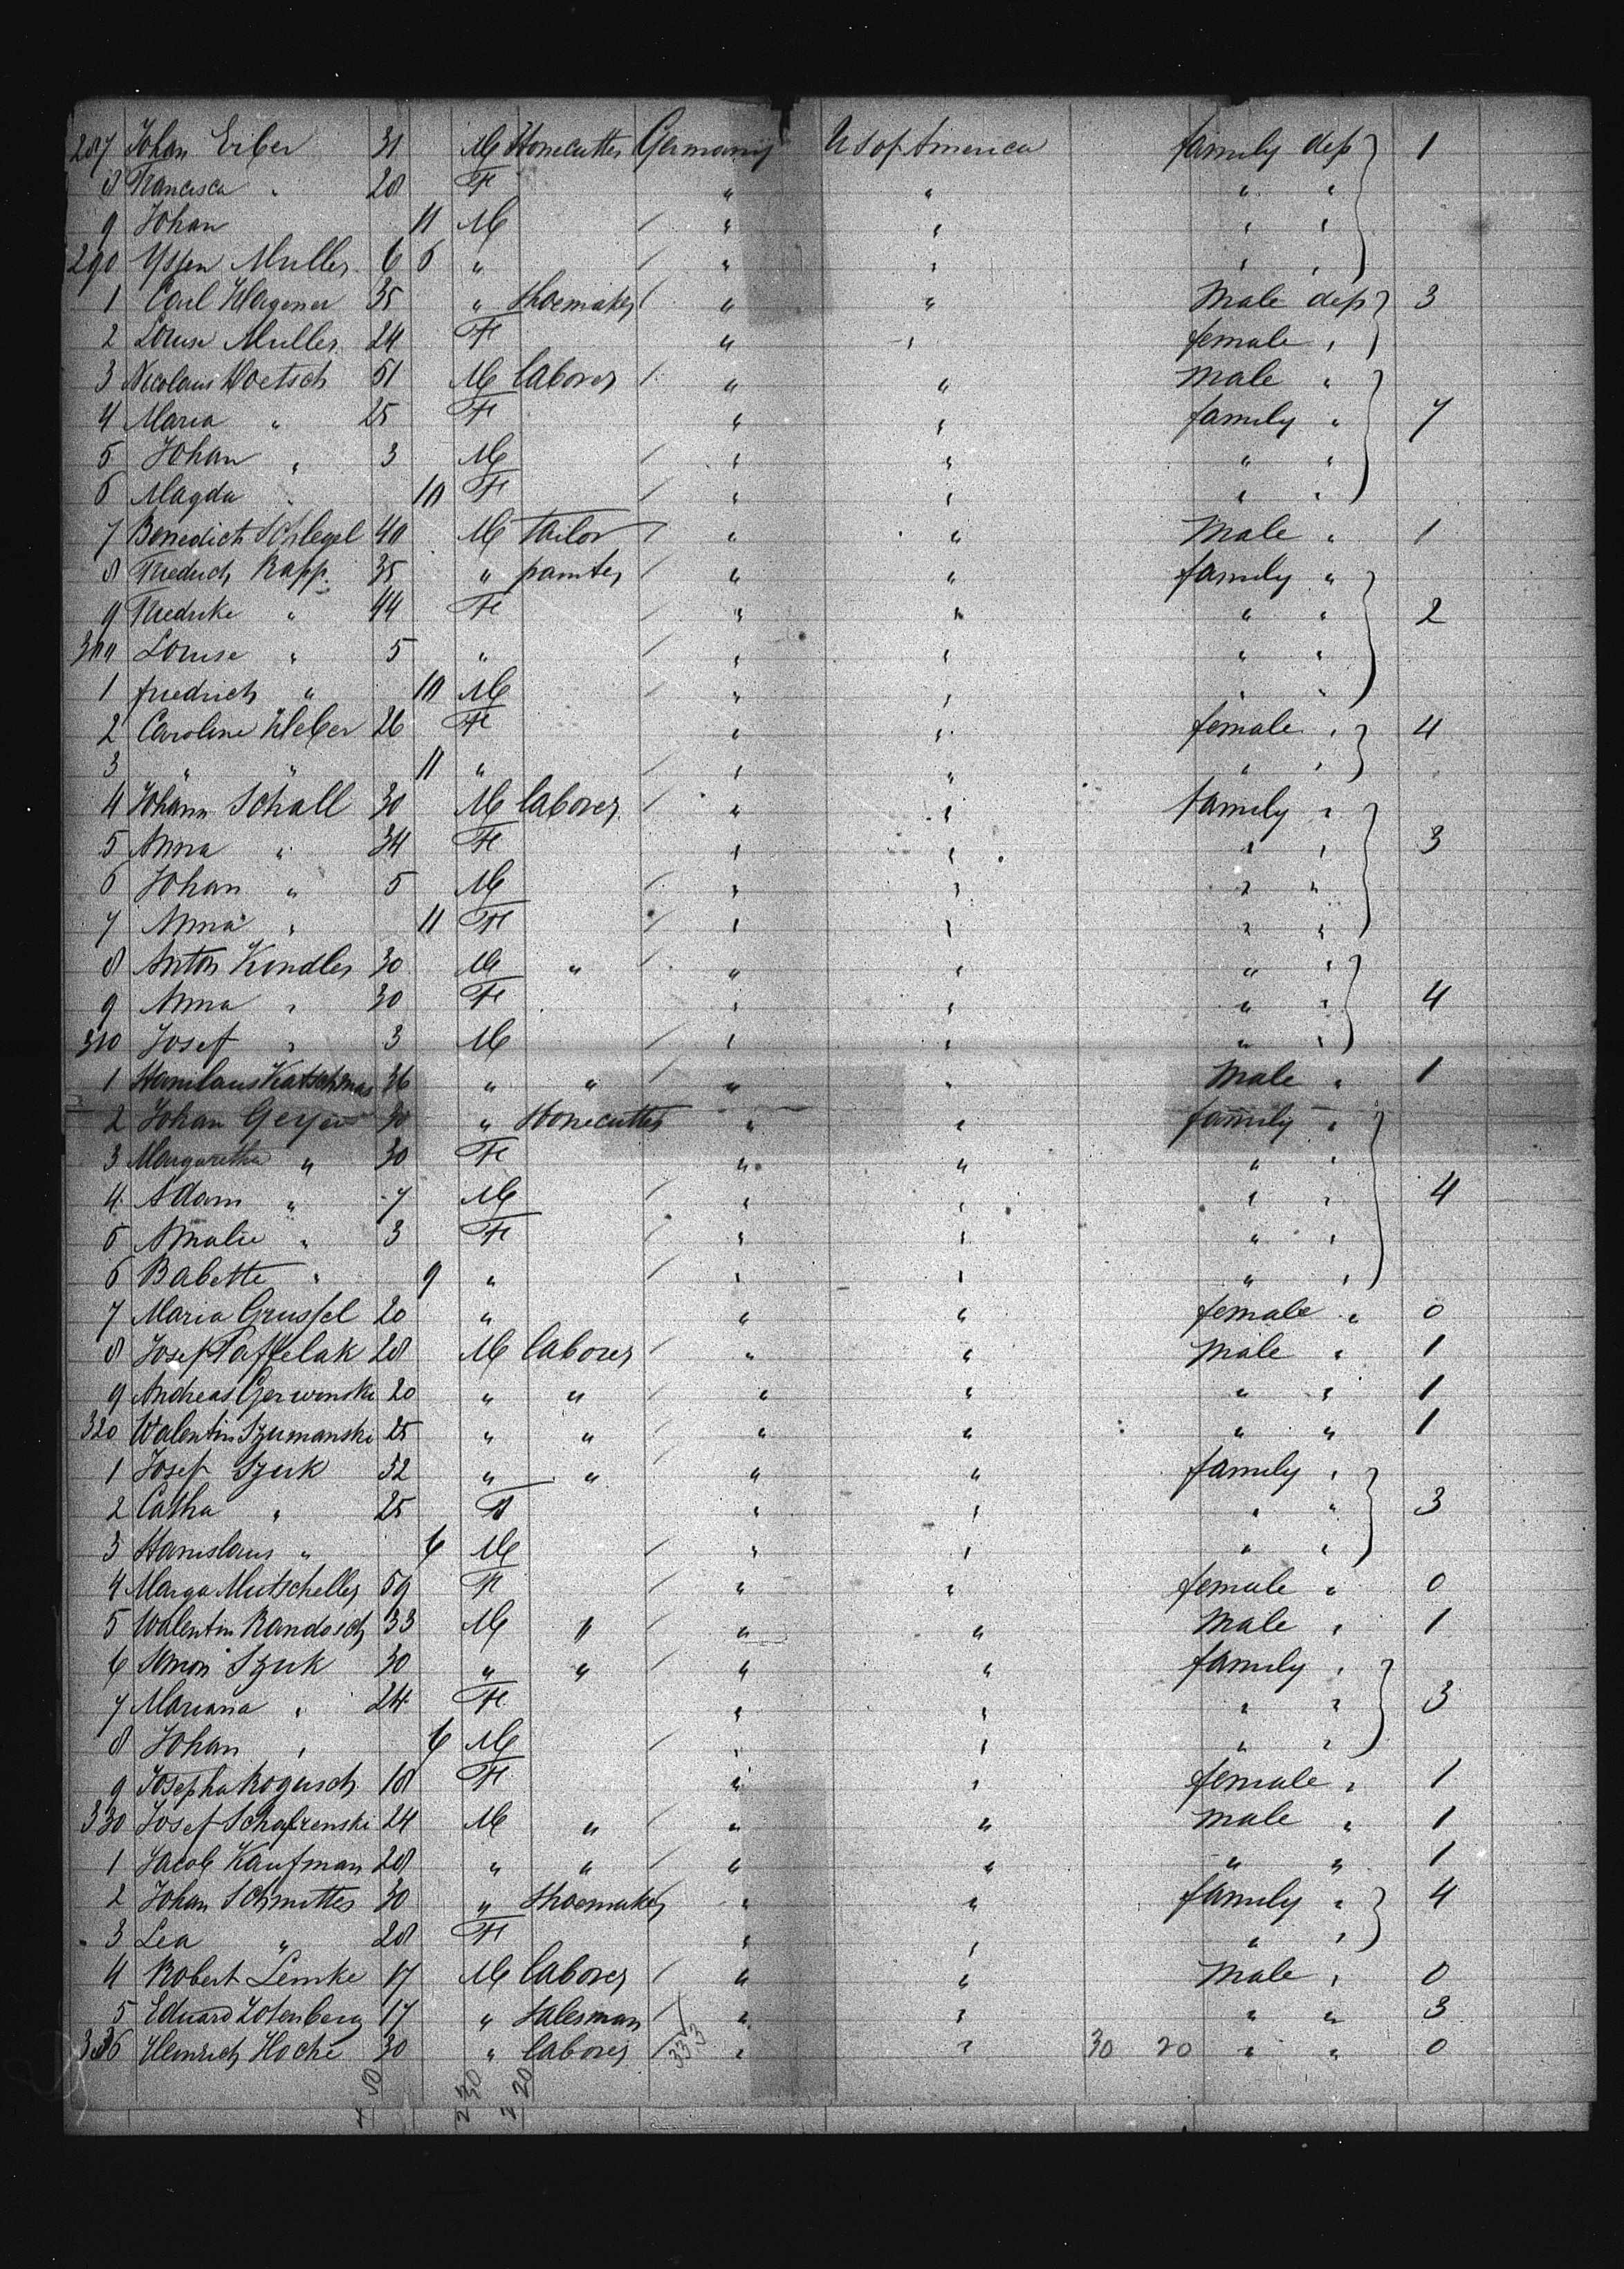 287 Johan Eiber 31 M Stonecutter Germany US of America family dep 1
8 Francisca " 28 F " " " "
9 Johan 11 M / " " " "
290 Muller 6 6 " / " " " "
1 Carl Wagener 35 " Shoemaker / " " Male dep 3
2 Louise Muller 24 F " " female "
3 Nicolaus Woetsch 51 M laborer / " " Male "
4 Maria " 25 F " " family " 7
5 Johan " 3 M / " " " "
6 Magda " 10 F / " " " "
7 Benedict Schlegel 40 M Tailor / " " Male " 1
8 Friedrich Rapp 35 " painter / " " family "
9 Friedrike " 44 F / " " " " 2
300 Louise " 5 " / " " " "
1 friedrich " 10 M / " " " "
2 Caroline Weber 26 F " " female " 4
3 " " 11 " / " " " "
4 Johann Schall 30 M laborer / " " family "
5 Anna " 34 F " " " " 3
6 Johan " 5 M / " " " "
7 Anna " 11 F / " " " "
8 Anton Kindler 30 M " / " " " "
9 Anna " 30 F " " " " 4
310 Josef " 3 M / " " " "
1 Stanilaus 36 " " / " " Male " 1
2 Johan Geyer 30 " Stonecutter " " family "
3 Margaretha " 30 F " " " "
4 Adam " 7 M / " " " " 4
5 Amalie " 3 F / " " " "
6 Babette " 9 " / " " " "
7 Maria Grussel 20 " " " female " 0
8 Josef Paffelak 28 M laborer / " " Male " 1
9 Andreas Gerwinski 20 " " / " " " " 1
320 Walentin Szumanski 25 " " / " " " " 1
1 Josef Szuk 32 " " " " family "
2 Catha " 25 F " " " " 3
3 Stanislaus " 6 M / " " " "
4 Marga Mutscheller 59 F / " " female " 0
5 Walentin Randosch 33 M " / " " Male " 1
6 Simon Szuk 30 " " / " " family "
7 Mariana " 24 F " " " " 3
8 Johan " 6 M / " " " "
9 Josepha Rogusch 18 F " " female " 1
330 Josef Schafrenski 24 M " / " " Male " 1
1 Jacob Kaufman 28 " " / " " " " 1
2 Johan Schmitter 30 " Shoemaker " " family " 4
3 Lea " 28 F " " " "
4 Robert Lemke 17 M laborer / " " Male " 0
5 Eduard Lotenberg 17 " Salesman / " " " " 3
336 Heinrich Hocke 30 " laborer / 333 " " 30 20 " " 0